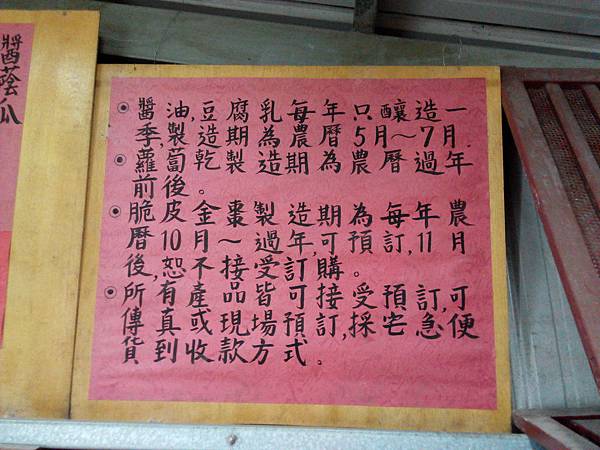 醬蔭瓜
◉醬油,豆腐乳每年只釀造一
季,製造期為農曆5月～7月.
◉蘿蔔乾製造期為農曆過年
前後。
◉脆皮金棗製造期為每年農
曆10月～過年,可預訂,11月
後,恕不接受訂購。
◉所有產品皆可接受預訂,可
傳真或現場預訂,採宅急便
貨到收款方式。